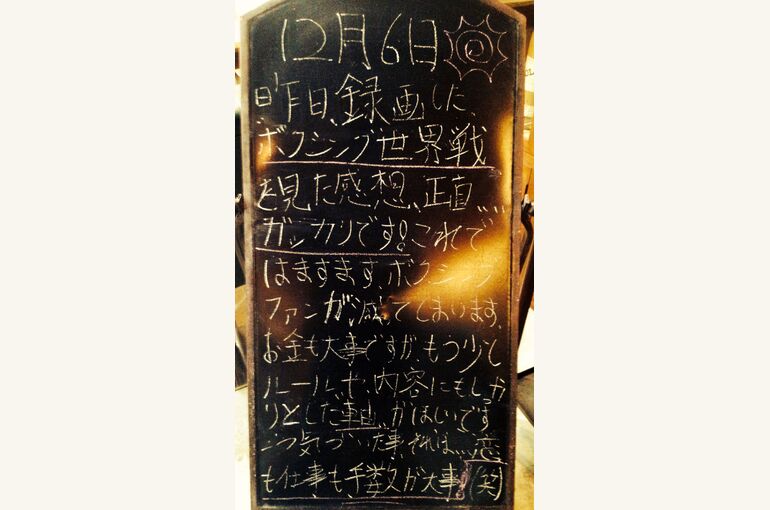 12月6日
昨日、録画した、
ボクシング世界戦
を見た感想、正直、、、、
ガッカリです!これで
はますます、ボクシング
ファンが減ってしまいます。
お金も大事ですが、もう少し
ルールや、内容にもしっか
りとした事由がほしいです
一つ気づいた事、それは、、、恋
も仕事も手数が大事!(笑)